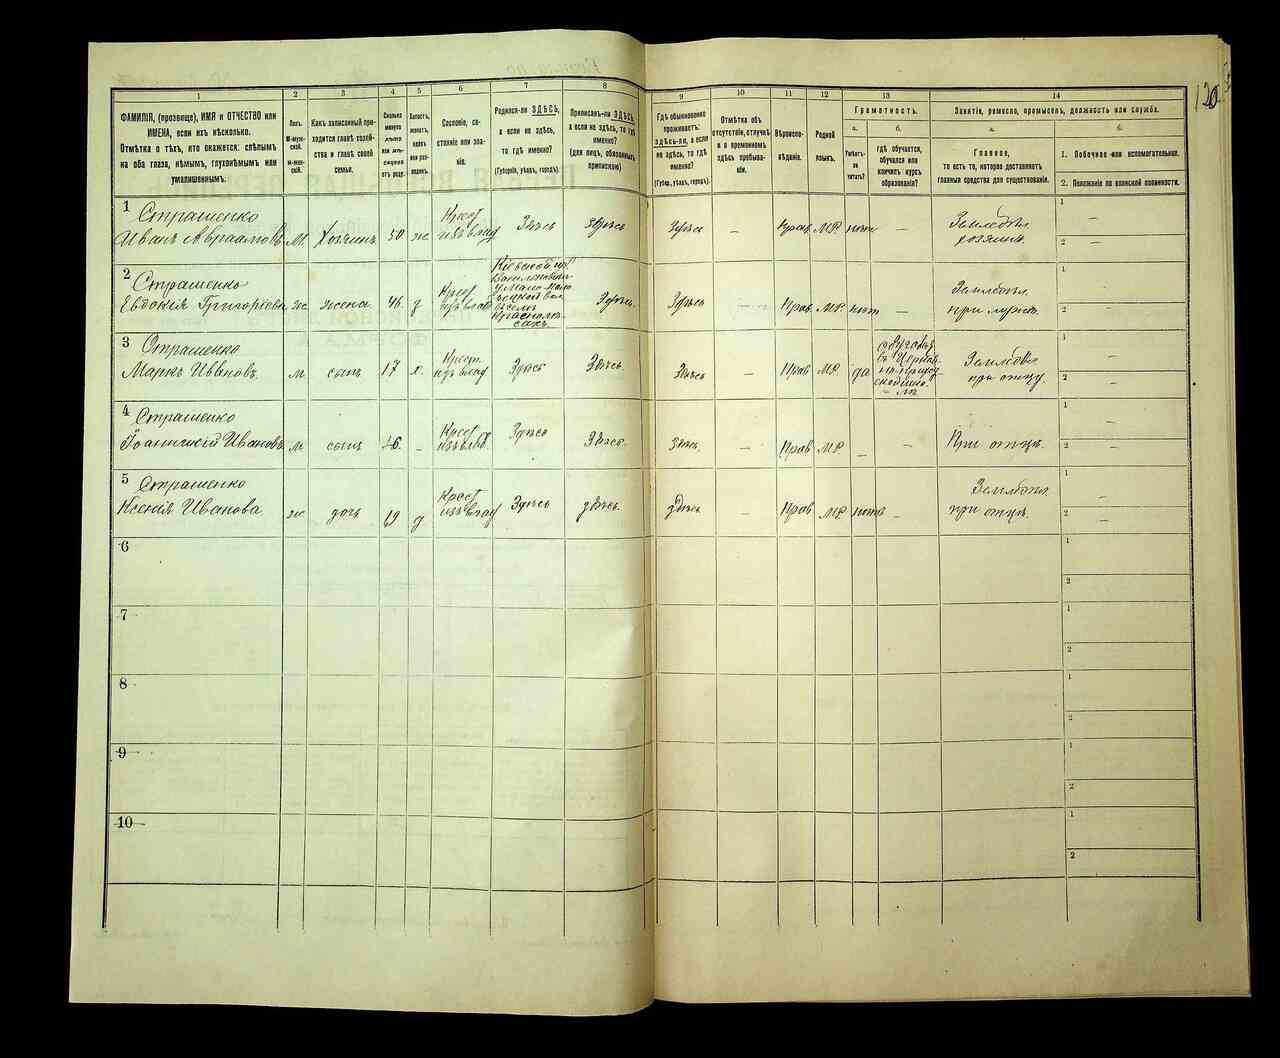 120
1
2
3
4
5
6
7
8
9
10
11
12
13
14
ФАМИЛІЯ, (прозвище), ИМЯ и ОТЧЕСТВО или
ИМЕНА, если ихъ нѣсколько.
Отмѣтка о тѣхъ, кто окажется: слѣпымъ
на оба глаза, нѣмымъ, глухонѣмымъ или
умалишеннымъ.
Полъ.
М-мужской.
Ж-женскій.
Какъ записанный приходится
главѣ хозяйства
и главѣ своей
семьи.
Сколько
минуло
лѣтъ
или мѣсяцевъ
отъ роду.
Холостъ,
женатъ,
вдовъ
или разведенъ.
Сословіе, состояніе
или званіе.
Родился-ли ЗДѢСЬ,
а если не здѣсь,
то гдѣ именно?
(Губернія, уѣздъ, городъ).
Приписанъ-ли ЗДѢСЬ,
а если не здѣсь, то гдѣ
именно?
(для лицъ, обязанныхъ
припискою)
Гдѣ обыкновенно
проживаетъ:
ЗДѢСЬ-ли, а если
не здѣсь, то гдѣ
именно?
(Губер., уѣздъ, городъ).
Отмѣтка объ
отсутствіи, отлучкѣ
и о временномъ
здѣсь пребываніи.
Вѣроисповѣданіе.
Родной
языкъ.
Грамотность.
а.
Умѣетъ-ли
читать?
б.
гдѣ обучается,
обучался или
кончилъ курсъ
образованія?
Занятіе, ремесло, промыселъ, должность или служба.
а.
Главное,
то есть то, которое доставляетъ
главныя средства для существованія.
б.
1. Побочное или вспомогательное.
2. Положеніе по воинской повинности.
1
Страшенко
Иванъ Авраамовъ М. Хозяинъ 50 ж. Крест изъ влад Здѣсь Здѣсь Здѣсь – Прав М.Р. нѣтъ – Земледѣл. хозяинъ.
1 –
2 –
2
Страшенко
Евдокія Григорьева ж. жена 46. з Крест изъ влад
Кіевской губ.
Здѣсь. Здѣсь – Прав. М.Р. нѣтъ – Земледѣл. при мужѣ.
1 –
2 –
3
Страшенко
Маркъ Ивановъ. м сынъ 17 х. Крест. изъ влад Здѣсь Здѣсь. Здѣсь – Прав М.Р. да
Земледѣл при отцу.
1 –
2 –
4
Страшенко
Ивановъ. м сынъ – Крест Здѣсь Здѣсь. Здѣсь. – Прав М.Р. – – При отцѣ.
1 –
2 –
5
Страшенко
Ксенія Иванова. ж. дочь 19 д Крест изъ влад Здѣсь здѣсь. здѣсь – Прав. М.Р. нѣтъ – Земледѣл. при отцѣ.
1 –
2 –
6
1
2
7
1
2
8
1
2
9
1
2
10
1
2